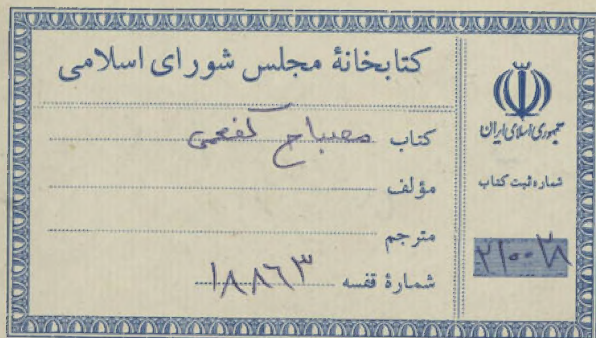 کتابخانهٔ مجلس شورای اسلامی
کتاب مصباح کفعمی
مؤلف
مترجم
شمارهٔ قفسه ۱۸۸۶۳
جمهوری اسلامی ایران
شماره ثبت کتاب